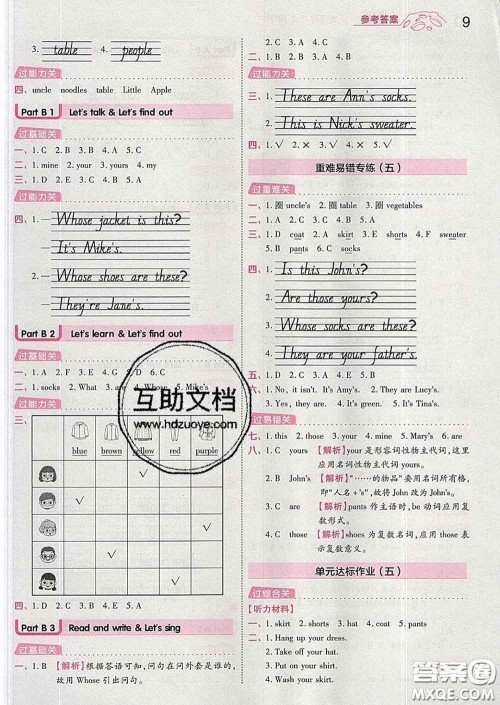 参考答案
9
3. table 4. people
过能力关
四、uncle noodles table Little Apple
Part B 1 Let's talk & Let's find out
过基础关
一、1. C 2. B 3. B 4. A 5. C
二、1. mine 2. your 3. yours 4. my
三、1. D 2. A 3. C 4. B
过能力关
四、1. — Whose jacket is this?
— It's Mike's.
2. — Whose shoes are these?
— They're Jane's.
Part B 2 Let's learn & Let's find out
过基础关
一、1. A 2. F 3. E 4. G 5. D
二、1. socks 2. What 3. are 4. Whose 5. Mike's
过能力关
三、
blue brown yellow red purple
✓
✓
✓
✓
四、1. D 2. A 3. B 4. E 5. C
Part B 3 Read and write & Let's sing
过基础关
一、1. B 【解析】根据答语可知,问句在问外套是谁的,
故用 Whose 引出问句。
2. C 3. A 4. C 5. A
二、1. C 2. A 3. C
过能力关
三、1. These are Ann's socks.
2. This is Nick's sweater.
四、1. ✓ 2. × 3. × 4. ✓ 5. ✓
重难易错专练(五)
过重难关
一、1. 圈 uncle 2. 圈 table 3. 圈 vegetables
三、1. D coat 2. A skirt 3. E shorts 4. F sweater
5. B pants 6. C socks
四、1. Is this John's?
2. Are those yours?
3. Whose socks are these?
4. They are your father's.
五、1. D 2. C 3. A 4. B
六、1. No, it isn't. It's Amy's. 2. They are Lucy's.
3. Yes, they are. 4. It's yours. 5. It's Tina's.
过易错关
七、1. this 2. those 3. your 4. mine 5. Mary's 6. are
八、1. C yours 【解析】your 是形容词性物主代词,这里
应用名词性物主代词 yours。
2. B John's 【解析】"……的物品"要用名词所有格,
即"人名 +'s",故应将 John 改为 John's。
3. C are 【解析】pants 作主语时,be 动词应用复
数形式。
4. C those 【解析】shoes 为复数名词,应用 those
表示复数意义。
单元达标作业(五)
过综合关
【听力材料】
一、1. skirt 2. shorts 3. pants 4. shirt
二、1. Hang up your dress.
2. Take off your hat.
3. Put on your skirt!
4. Wash your skirt.
互助文档
www.hdzuoye.com
答案圈
MXQE.COM